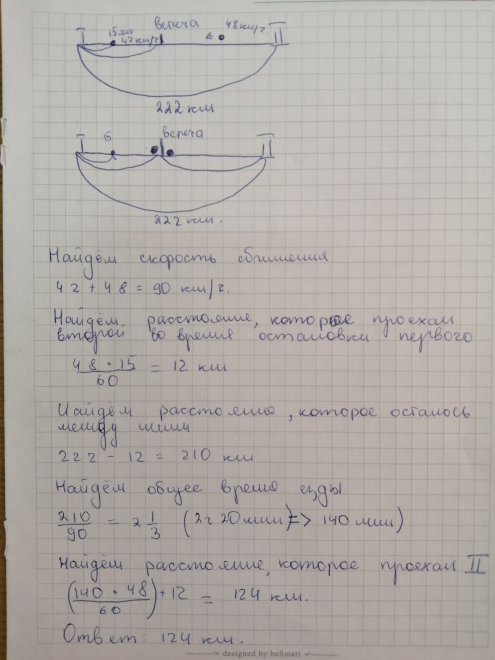 I 15 мин встреча 48 км/ч II
42 км/ч
222 км
I Б встреча II
222 км.
Найдём скорость сближения
42 + 48 = 90 км/ч.
Найдём расстояние, которое проехал
второй во время остановки первого
48 • 15 / 60 = 12 км
Найдём расстояние, которое осталось
между ними
222 - 12 = 210 км
Найдём общее время езды
210 / 90 = 2 1/3 (2ч 20 мин => 140 мин)
Найдём расстояние, которое проехал II
(140 • 48 / 60) + 12 = 124 км.
Ответ: 124 км.
designed by beSmart